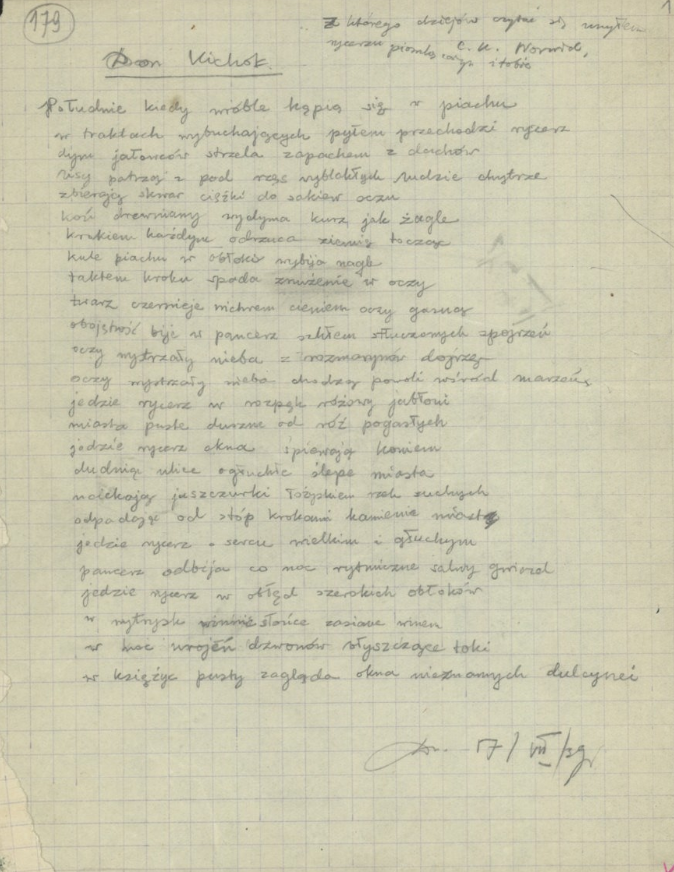 179
1
z którego dziejów czytać się uczyłem
rycerzu piosnką i o tobie
C. K. Norwid,
Don Kichot.
Południe kiedy wróble kąpią się w piachu
w traktach wybuchających pyłem przechodzi rycerz
dym jałowców strzela zapachem z dachów
patrzą z pod rzęs wyblakłych ludzie chytrze
zbierają skwar ciężki do sakiew oczu
koń drewniany wydyma kurz jak żagle
krokiem każdym odrzuca ziemię tocząc
kule piachu w obłoki wybija nagle
taktem kroku spada znużenie w oczy
twarz czernieje wichrem cieniem oczy gasną
obojętność bije w pancerz szkłem stłuczonych spojrzeń
oczy wystrzały nieba z rozmarynów dojrzą
oczy wystrzały nieba chodzą powoli wśród marzeń
jedzie rycerz w rozpęk różowy jabłoni
miasta puste durzne od róż pogasłych
jedzie rycerz okna śpiewają koniem
dudnią ulice ogłuchłe ślepe miasta
jaszczurki łożyskiem rzek suchych
odpadają od stóp krokami kamienie miasta
jedzie rycerz o sercu wielkim i głuchym
pancerz odbija co noc rytmiczne salwy gwiazd
jedzie rycerz w obłęd szerokich obłoków
w wytrysk winnic słońce zasiane winem
w noc urojeń dzwonów słyszące toki
w księżyc pusty zagląda okna nieznanych dulcynei
dn. 17/VII/39